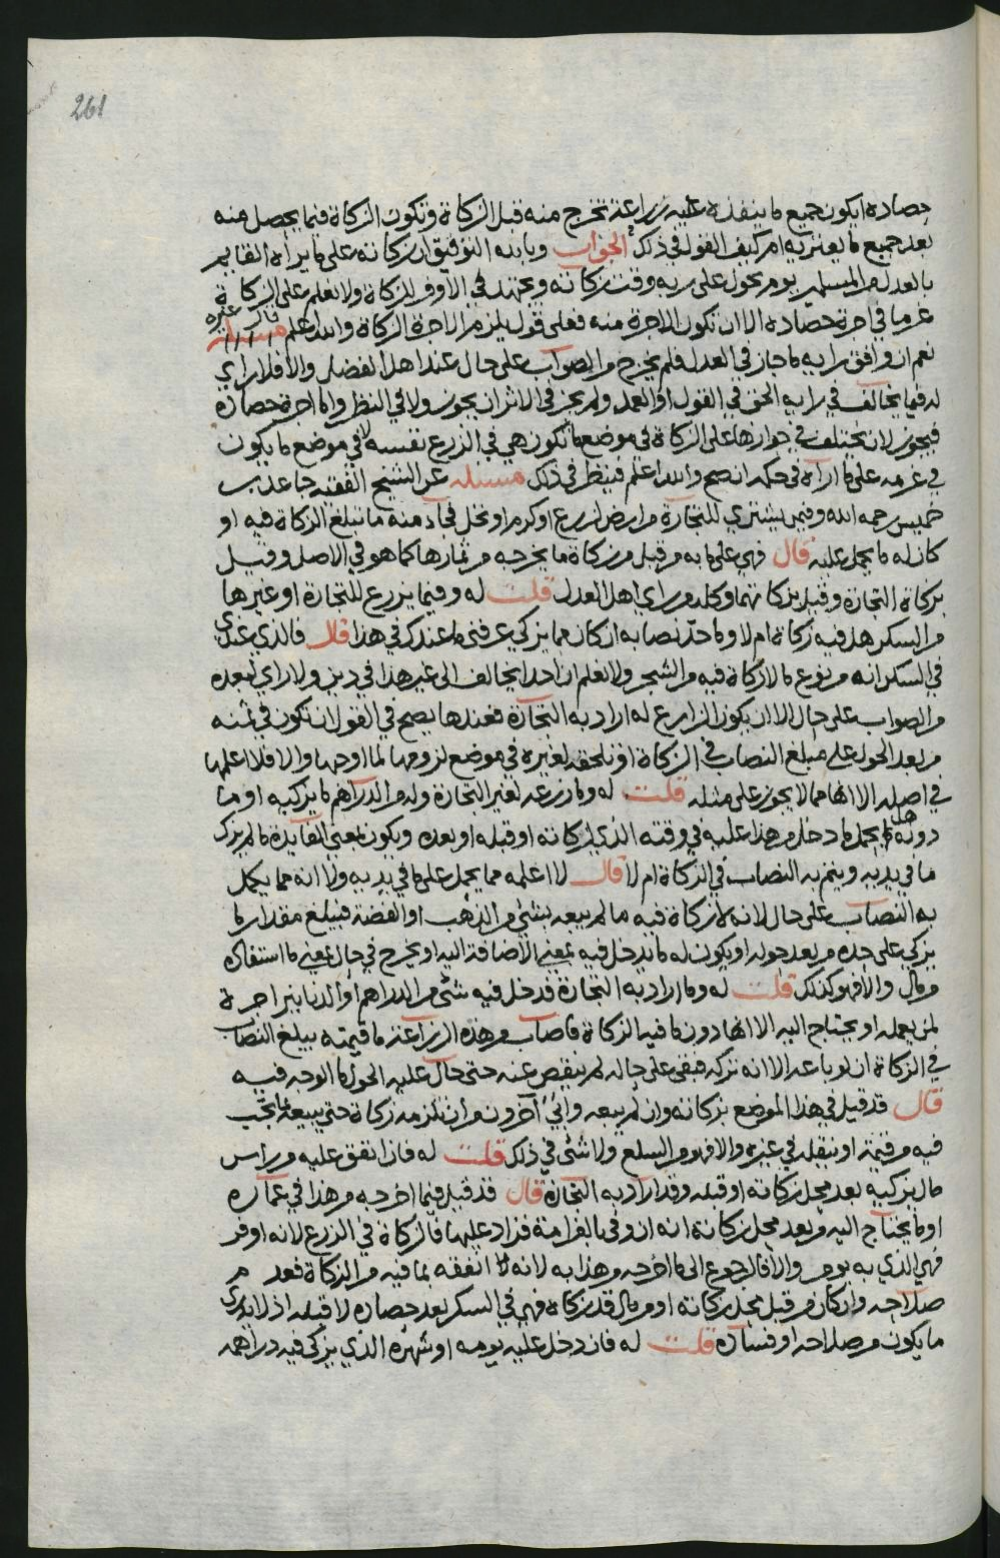 261
حصاده ايكون جميع ما ينفذه عليه زراعة تخرج منه قبل الزكاة وتكون الزكاة فيما يحصل منه
بعد جميع ما يعتريه ام كيف القول في ذلك الجواب وبالله التوفيق ان زكاته على ما يراه القايم
بالعدل من المسلمين يوم يحول على ربه وقت زكاته ويجتهد في الاوفر للزكاة ولا نعلم على الزكاة
غرما في اجرة حصاده الا ان تكون الاجرة منه فعلى قول يلزم الاجرة الزكاة والله اعلم مسئلة قال غيره
نعم ان وافق رايه ما جاز في العدل فلم يخرج من الصواب على حال عند اهل الفضل والا فلا راي
له فيما يخالف في رايه الحق في القول او العمل ولم يجز في الاثر ان يجوز ولا في النظر واما اجرة حصاده
فيجوز لان يختلف في جوازها على الزكاة في موضع ما تكون هي في الزرع نفسه لا في موضع ما يكون
في غرمه على ما اراه في حكمه ان صح والله اعلم فينظر في ذلك مسئلة عن الشيخ الفقيه جاعد بن
خميس رحمه الله وفيمن يشتري للتجارة من ارض لزرع او كرم او نخل فجاد منه ما تبلغ الزكاة فيه او
كان له ما يحمل عليه قال فهي على ما به من قبل من زكاة ما يخرجه من ثمارها كما هو في الاصل وقيل
بزكاة التجارة وقيل بزكاتهما وكله من راي اهل العدل قلت له وفيما يزرع للتجارة او غيرها
من السكر هل فيه زكاة ام لا وما حد نصابه ان كان مما يزكي عرفني ما عندك في هذا قال فالذي عندي
في السكر انه من نوع ما لا زكاة فيه من الشجر ولا نعلم ان احدا يخالف الى غير هذا في دين ولا راي لبعده
من الصواب على حال الا ان يكون الزارع له اراد به التجارة فعندها يصح في القول ان تكون في ثمنه
من بعد الحول على مبلغ النصاب في الزكاة او تلحقه لغيره في موضع لزومها لما اوجبها والا فلا اعلمها
في اصله الا انها مما لا يجوز على مثله قلت له وما زرعه لغير التجارة وله من الدراهم ما يزكيه او ما
دونه هل يحمل ما دخل من هذا عليه في وقته الذي لزكاته او قبله او بعده ويكون بمعنى الفايدة ما لم يزك
ما في يديه ويتم به النصاب في الزكاة ام لا قال لا اعلمه مما يحمل على ما في يديه ولا انه مما يكمل
به النصاب على حال لانه لا زكاة فيه ما لم يبعه بشئ من الذهب او الفضة فيبلغ مقدار ما
يزكي على حده من بعد حوله او يكون له ما يدخل فيه بمعنى الاضافة اليه او يخرج في حال بمعنى ما استفاده
من مال والا فهو كذلك قلت له وما اراد به التجارة قد دخل فيه شئ من الدراهم او الدنانير اجرة
لمن يعمله او يحتاج اليه الا انها دون ما فيه الزكاة فاصاب من هذه الزراعة ما قيمته يبلغ النصاب
في الزكاة ان لو باعه الا انه تركه فبقي على حاله لم ينقص عنه حتى حال عليه الحول ما الوجه فيه
قال قد قيل في هذا الموضع بزكاته وان لم يبعه وابى آخرون من ان تلزمه زكاة حتى يبيعه بما تجب
فيه من قيمته او ينقله في غيره والا فهو من السلع ولا شئ في ذلك قلت له فان اتفق عليه من راس
مال يزكيه بعد محل زكاته او قبله وقد اراد به التجارة قال قد قيل فيما اخرجه من هذا في عماره
او ما يحتاج اليه من بعد محل زكاته انه ان وفى بالغرامة فزاد عليها فالزكاة في الزرع لانه اوفر
فهي الذي به يوم والا فالرجوع الى ما اخرجه من هذا به لانه انفقه بما فيه من الزكاة فعد من
صلاحه وان كان من قبل محل زكاته او من مال قد زكاه فهي في السكر بعد حصاده لا قبله اذ لا يدري
ما يكون من صلاحه او فساده قلت له فان دخل عليه يومه او شهره الذي يزكى فيه دراهمه